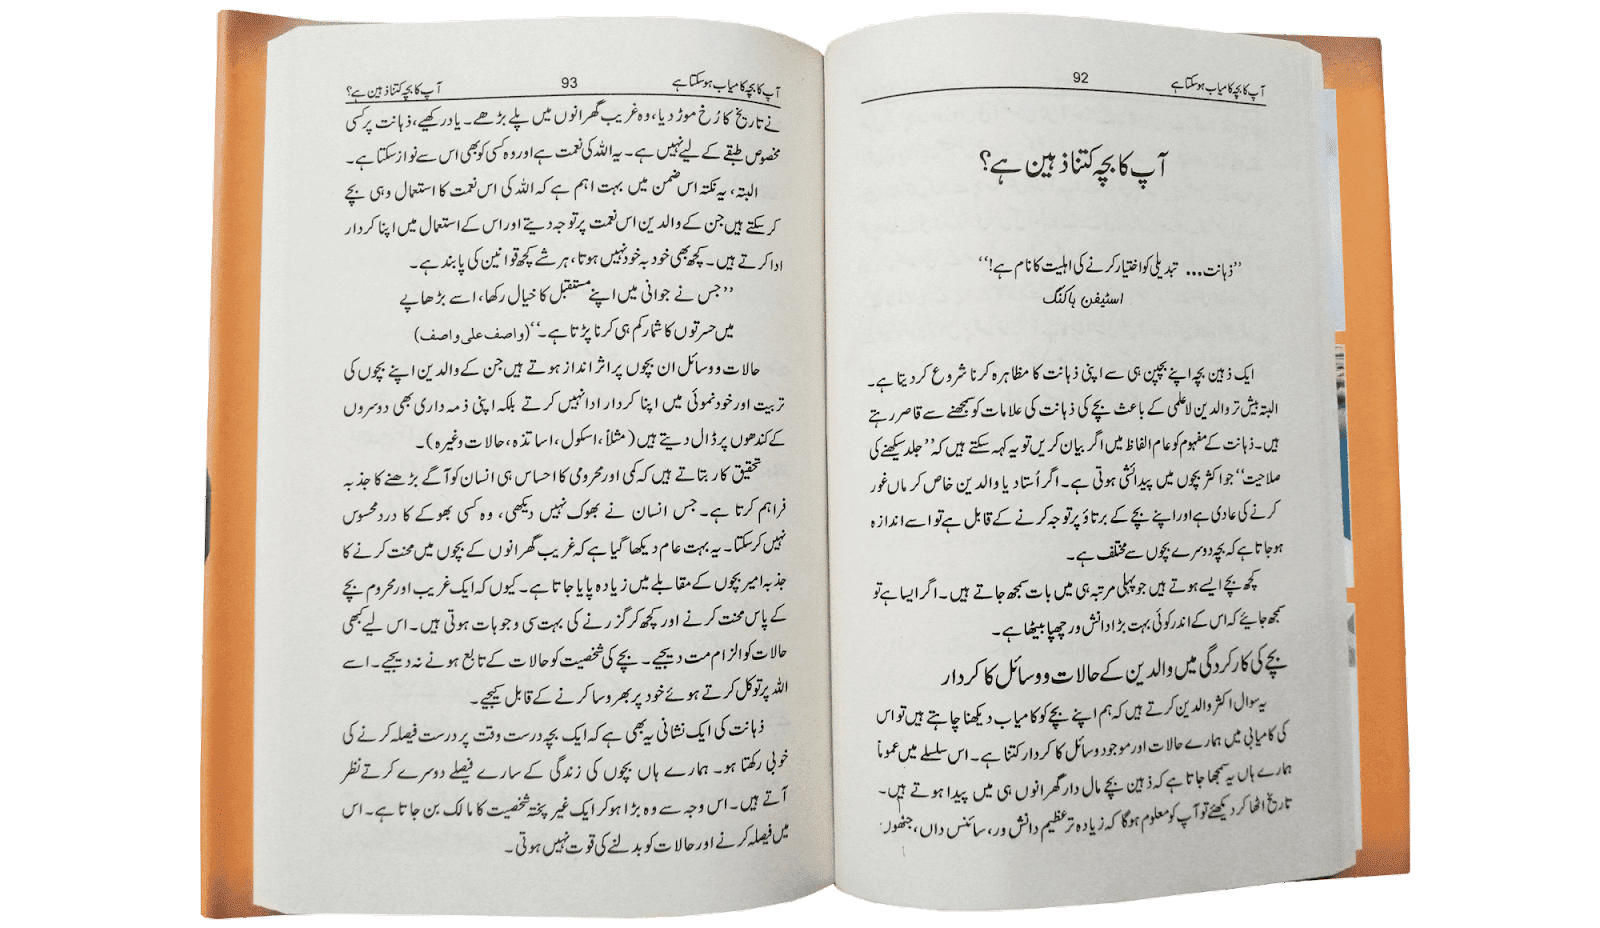 آپ کا بچہ کامیاب ہوسکتا ہے 92
آپ کا بچہ کتنا ذہین ہے؟
’’ذہانت... تبدیلی کو اختیار کرنے کی اہلیت کا نام ہے!‘‘
اسٹیفن ہاکنگ
ایک ذہین بچہ اپنے بچپن ہی سے اپنی ذہانت کا مظاہرہ کرنا شروع کر دیتا ہے۔
البتہ بیش تر والدین لاعلمی کے باعث بچے کی ذہانت کی علامات کو سمجھنے سے قاصر رہتے
ہیں۔ ذہانت کے مفہوم کو عام الفاظ میں اگر بیان کریں تو یہ کہہ سکتے ہیں کہ ’’جلد سیکھنے کی
صلاحیت‘‘ جو اکثر بچوں میں پیدائشی ہوتی ہے۔ اگر اُستاد یا والدین خاص کر ماں غور
کرنے کی عادی ہے اور اپنے بچے کے برتاؤ پر توجہ کرنے کے قابل ہے تو اسے اندازہ
ہوجاتا ہے کہ بچہ دوسرے بچوں سے مختلف ہے۔
کچھ بچے ایسے ہوتے ہیں جو پہلی مرتبہ ہی میں بات سمجھ جاتے ہیں۔ اگر ایسا ہے تو
سمجھ جائیے کہ اس کے اندر کوئی بہت بڑا دانش ور چھپا بیٹھا ہے۔
بچے کی کارکردگی میں والدین کے حالات و وسائل کا کردار
یہ سوال اکثر والدین کرتے ہیں کہ ہم اپنے بچے کو کامیاب دیکھنا چاہتے ہیں تو اس
کی کامیابی میں ہمارے حالات اور موجود وسائل کا کردار کتنا ہے۔ اس سلسلے میں عموماً
ہمارے ہاں یہ سمجھا جاتا ہے کہ ذہین بچے مال دار گھرانوں ہی میں پیدا ہوتے ہیں۔
تاریخ اٹھا کر دیکھئے تو آپ کو معلوم ہوگا کہ زیادہ تر عظیم دانش ور، سائنس داں، جنھوں
آپ کا بچہ کامیاب ہوسکتا ہے 93 آپ کا بچہ کتنا ذہین ہے؟
نے تاریخ کا رُخ موڑ دیا، وہ غریب گھرانوں میں پلے بڑھے۔ یاد رکھیے، ذہانت پر کسی
مخصوص طبقے کے لیے نہیں ہے۔ یہ اللہ کی نعمت ہے اور وہ کسی کو بھی اس سے نواز سکتا ہے۔
البتہ، یہ نکتہ اس ضمن میں بہت اہم ہے کہ اللہ کی اس نعمت کا استعمال وہی بچے
کرسکتے ہیں جن کے والدین اس نعمت پر توجہ دیتے اور اس کے استعمال میں اپنا کردار
ادا کرتے ہیں۔ کچھ بھی خود بہ خود نہیں ہوتا، ہر شے کچھ قوانین کی پابند ہے۔
’’جس نے جوانی میں اپنے مستقبل کا خیال رکھا، اسے بڑھاپے
میں حسرتوں کا شمار کم ہی کرنا پڑتا ہے۔‘‘ (واصف علی واصف)
حالات و وسائل ان بچوں پر اثر انداز ہوتے ہیں جن کے والدین اپنے بچوں کی
تربیت اور خود نموئی میں اپنا کردار ادا نہیں کرتے بلکہ اپنی ذمہ داری بھی دوسروں
کے کندھوں پر ڈال دیتے ہیں (مثلاً، اسکول، اساتذہ، حالات وغیرہ)۔
تحقیق کار بتاتے ہیں کہ کمی اور محرومی کا احساس ہی انسان کو آگے بڑھنے کا جذبہ
فراہم کرتا ہے۔ جس انسان نے بھوک نہیں دیکھی، وہ کسی بھوکے کا درد محسوس
نہیں کرسکتا۔ یہ بہت عام دیکھا گیا ہے کہ غریب گھرانوں کے بچوں میں محنت کرنے کا
جذبہ امیر بچوں کے مقابلے میں زیادہ پایا جاتا ہے۔ کیوں کہ ایک غریب اور محروم بچے
کے پاس محنت کرنے اور کچھ کر گزرنے کی بہت سی وجوہات ہوتی ہیں۔ اس لیے کبھی
حالات کو الزام مت دیجیے۔ بچے کی شخصیت کو حالات کے تابع ہونے نہ دیجیے۔ اسے
اللہ پر توکل کرتے ہوئے خود پر بھروسا کرنے کے قابل کیجیے۔
ذہانت کی ایک نشانی یہ بھی ہے کہ ایک بچہ درست وقت پر درست فیصلہ کرنے کی
خوبی رکھتا ہو۔ ہمارے ہاں بچوں کی زندگی کے سارے فیصلے دوسرے کرتے نظر
آتے ہیں۔ اس وجہ سے وہ بڑا ہوکر ایک غیر پختہ شخصیت کا مالک بن جاتا ہے۔ اس
میں فیصلہ کرنے اور حالات کو بدلنے کی قوت نہیں ہوتی۔